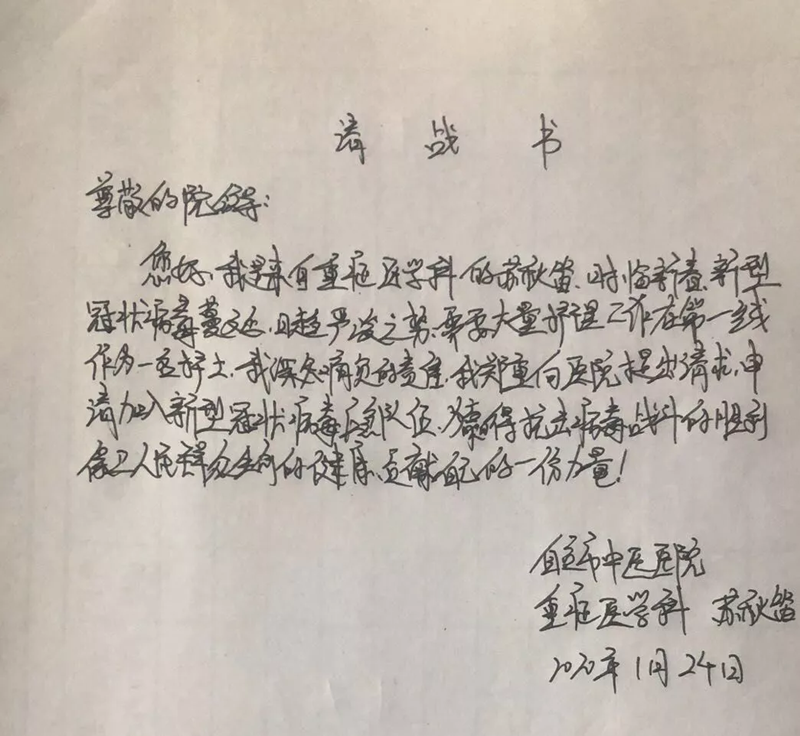 请战书
尊敬的院领导:
您好,我是来自重症医学科的苏秋笛,时临新春,新型
冠状病毒蔓延,日趋严峻之势,需要大量护理工作在第一线
作为一名护士,我深知肩负的责任,我郑重向医院提出请求,申
请加入新型冠状病毒应急队伍,为赢得抗击病毒战斗的胜利
保卫人民群众生命的健康,贡献自己的一份力量!
自贡市中医医院
重症医学科 苏秋笛
2020年1月24日